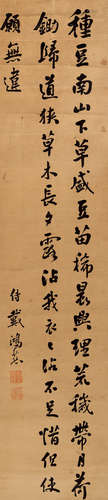 種豆南山下草盛豆苗稀晨興理荒穢帶月荷
鋤歸道狹草木長夕露沾我衣〻沾不足惜但使
願無違
戴鴻慈